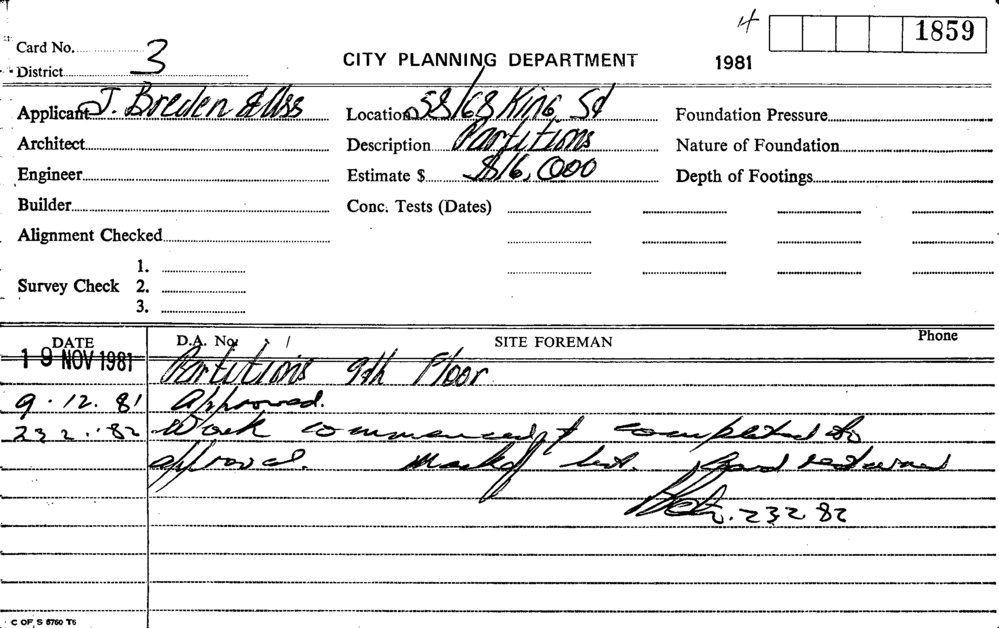 4 1859
Card No. 3
District
CITY PLANNING DEPARTMENT 1981
Applicant J. Breden & Ass Location 58/68 King St Foundation Pressure
Architect Description Partitions Nature of Foundation
Engineer Estimate $ $16,000 Depth of Footings
Builder Conc. Tests (Dates)
Alignment Checked
1.
Survey Check 2.
3.
DATE D.A. No. / SITE FOREMAN Phone
19 NOV 1981 Partitions 9th Floor
9.12.81 Approved.
23 2. 82 Work commenced & completed to
approval. Mark off list. Card returned
23 2 82
C OF S 5760 T6